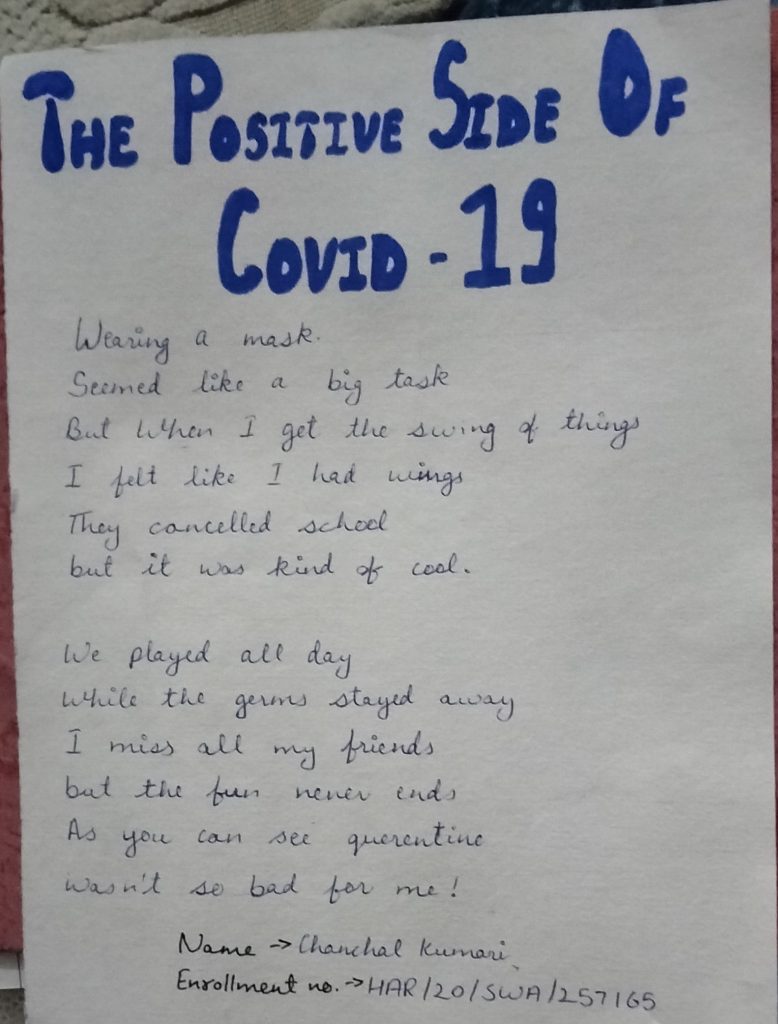 THE POSITIVE SIDE OF
COVID-19
Wearing a mask.
Seemed like a big task
But When I get the swing of things
I felt like I had wings
They cancelled school
but it was kind of cool.
We played all day
While the germs stayed away
I miss all my friends
but the fun never ends
As you can see querentine
wasn't so bad for me!
Name → Chanchal Kumari
Enrollment no. → HAR/20/SWA/257165